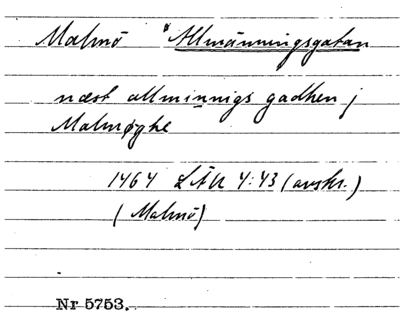 Malmö *Allmänningsgatan
næst allminnigs gadhen j
Malmøghe
1464 LÄU 4:43 (avskr.)
(Malmö)
Nr 5753.